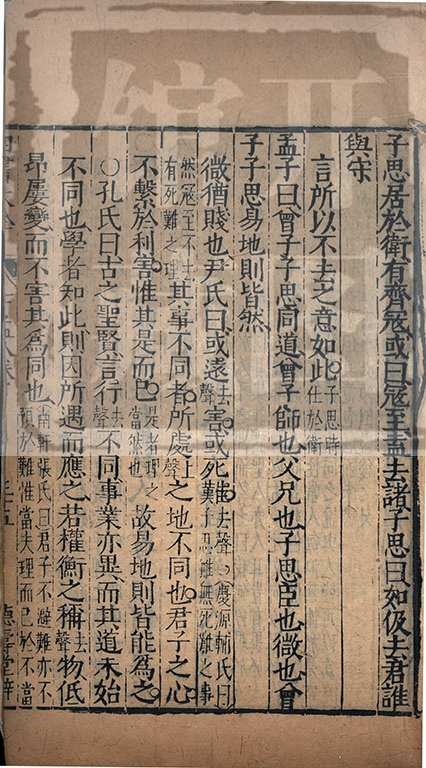 子思居於衛有齊寇或曰寇至盍去諸子思曰如伋去君誰
與守
言所以不去之意如此子思時仕於衛
孟子曰曾子子思同道曾子師也父兄也子思臣也微也曾
子子思易地則皆然
微猶賤也尹氏曰或遠去聲害或死難去聲○慶源輔氏曰子思雖無死難之事
然寇至不去有死難之理其事不同者所處上聲之地不同也君子之心
不繫於利害惟其是而已是者理之當然也故易地則皆能為之
○孔氏曰古之聖賢言行去聲不同事業亦異而其道未始
不同也學者知此則因所遇而應之若權衡之稱去聲物低
昂屢變而不害其為同也南軒張氏曰君子不避難亦不